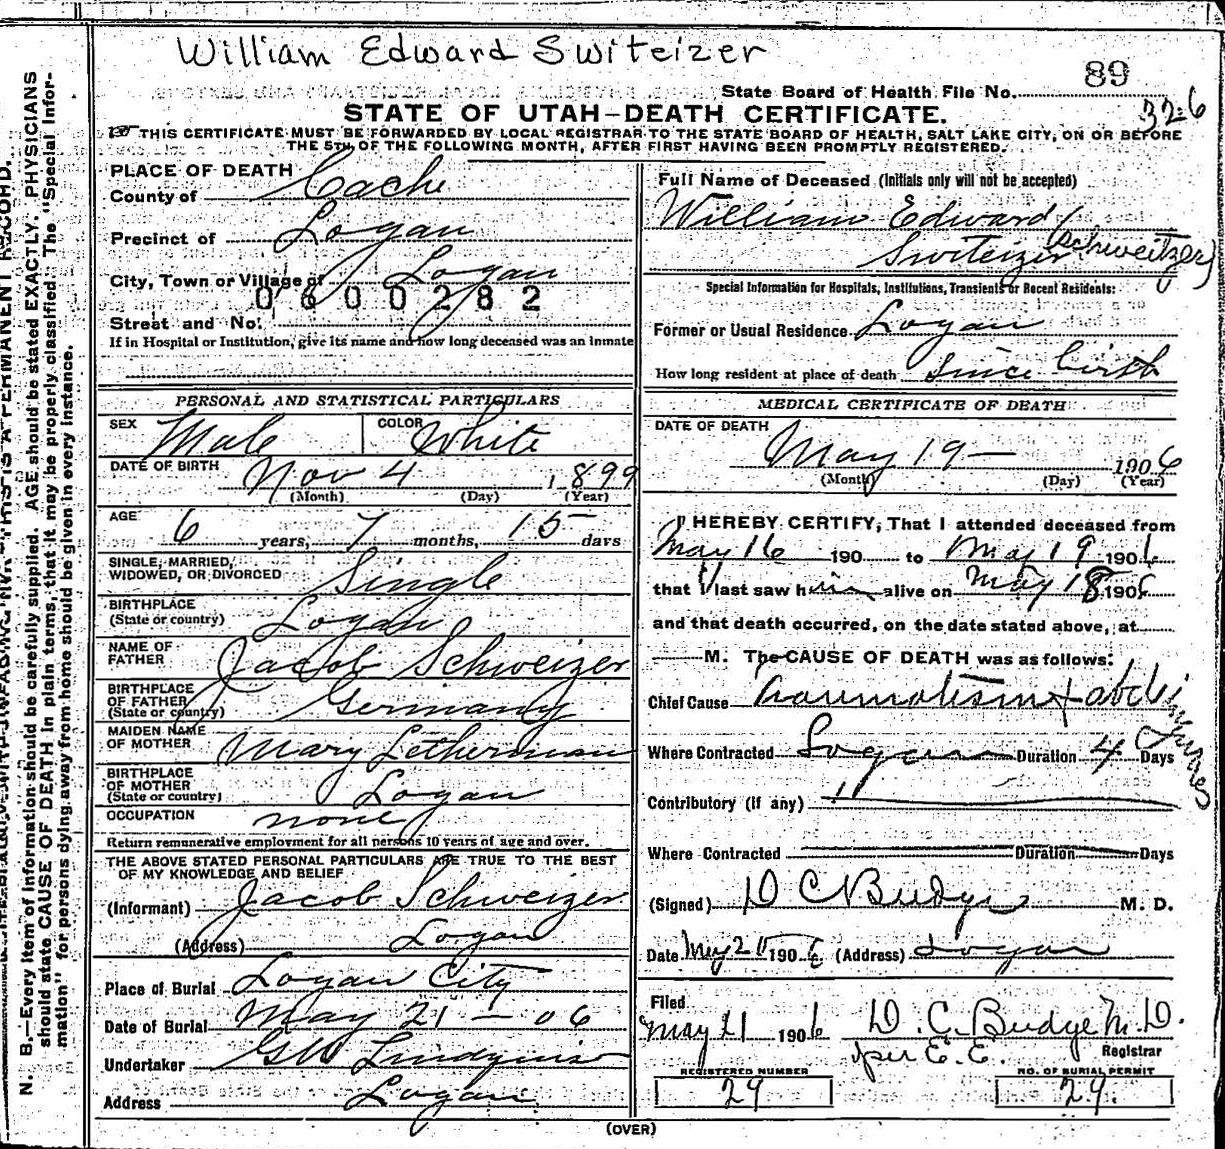 William Edward Switeizer
89
State Board of Health File No.
326
STATE OF UTAH–DEATH CERTIFICATE.
THIS CERTIFICATE MUST BE FORWARDED BY LOCAL REGISTRAR TO THE STATE BOARD OF HEALTH, SALT LAKE CITY, ON OR BEFORE
THE 5TH OF THE FOLLOWING MONTH, AFTER FIRST HAVING BEEN PROMPTLY REGISTERED.
PLACE OF DEATH
County of Cache
Precinct of Logan
City, Town or Village of Logan
0600282
Street and No.
If in Hospital or Institution, give its name and how long deceased was an inmate
PERSONAL AND STATISTICAL PARTICULARS
SEX Male COLOR White
DATE OF BIRTH Nov 4 1899
(Month) (Day) (Year)
AGE 6 years, 7 months, 15 days
SINGLE, MARRIED,
WIDOWED, OR DIVORCED Single
BIRTHPLACE
(State or country) Logan
NAME OF
FATHER Jacob Schweizer
BIRTHPLACE
OF FATHER
(State or country) Germany
MAIDEN NAME
OF MOTHER Mary Letherman
BIRTHPLACE
OF MOTHER
(State or country) Logan
OCCUPATION none
Return remunerative employment for all persons 10 years of age and over.
THE ABOVE STATED PERSONAL PARTICULARS ARE TRUE TO THE BEST
OF MY KNOWLEDGE AND BELIEF
(Informant) Jacob Schweizer
(Address) Logan
Place of Burial Logan City
Date of Burial May 21 – 06
Undertaker GW Lindquist
Address Logan
Full Name of Deceased (Initials only will not be accepted)
William Edward
Switeizer (Schweitzer)
Special Information for Hospitals, Institutions, Transients or Recent Residents:
Former or Usual Residence Logan
How long resident at place of death since birth
MEDICAL CERTIFICATE OF DEATH
DATE OF DEATH
May 19 – 1906
(Month) (Day) (Year)
I HEREBY CERTIFY, That I attended deceased from
May 16 190 to May 19 1906
that I last saw him alive on May 18 1906
and that death occurred, on the date stated above, at
M. The CAUSE OF DEATH was as follows:
Chief Cause Traumatism +
Where Contracted Logan Duration 4 Days
Contributory (if any)
Where Contracted Duration Days
(Signed) D C Budge M. D.
Date May 1906 (Address) Logan
Filed
May 21 1906 D. C. Budge M. D.
per E. E. Registrar
REGISTERED NUMBER
29
NO. OF BURIAL PERMIT
29.
(OVER)
N. B.—Every item of information should be carefully supplied. AGE should be stated EXACTLY. PHYSICIANS
should state CAUSE OF DEATH in plain terms, that it may be properly classified. The "Special Infor-
mation" for persons dying away from home should be given in every instance.